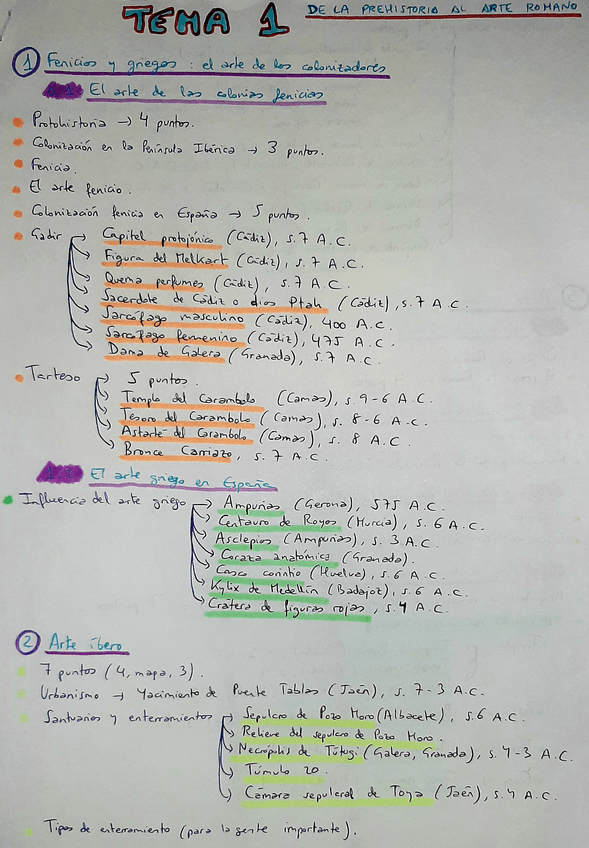 TEMA 1
DE LA PREHISTORIA AL ARTE ROMANO
1 Fenicios y griegos : el arte de los colonizadores
El arte de las colonias fenicias
Protohistoria → 4 puntos.
Colonización en la Península Ibérica → 3 puntos.
Fenicia.
El arte fenicio.
Colonización fenicia en España → 5 puntos.
Gadir → Capitel protojónico (Cádiz), s.7 A.C.
Figura del Melkart (Cádiz), s.7 A.C.
Quema perfumes (Cádiz), s.7 A.C.
Sacerdote de Cádiz o dios Ptah (Cádiz), s.7 A.C.
Sarcófago masculino (Cádiz), 400 A.C.
Sarcófago femenino (Cádiz), 475 A.C.
Dama de Galera (Granada), s.7 A.C.
Tarteso → 5 puntos.
Templo del Carambolo (Camas), s.9-6 A.C.
Tesoro del Carambolo (Camas), s. 8-6 A.C.
Astarté del Carambolo (Camas), s. 8 A.C.
Bronce Carriazo, s.7 A.C.
El arte griego en España
Influencia del arte griego → Ampurias (Gerona), 575 A.C.
Centauro de Royos (Murcia), s.6 A.C.
Asclepios (Ampurias), s.3 A.C.
Coraza anatómica (Granada).
Casco corintio (Huelva), s.6 A.C.
Kylix de Medellín (Badajoz), s.6 A.C.
Crátera de figuras rojas, s.4 A.C.
2 Arte íbero
7 puntos (4, mapa, 3).
Urbanismo → Yacimiento de Puente Tablas (Jaén), s. 7-3 A.C.
Santuarios y enterramientos → Sepulcro de Pozo Moro (Albacete), s.6 A.C.
Relieve del sepulcro de Pozo Moro.
Necrópolis de Tútugi (Galera, Granada), s.4-3 A.C.
Túmulo 20.
Cámara sepulcral de Toya (Jaén), s.4 A.C.
Tipos de enterramiento (para la gente importante).